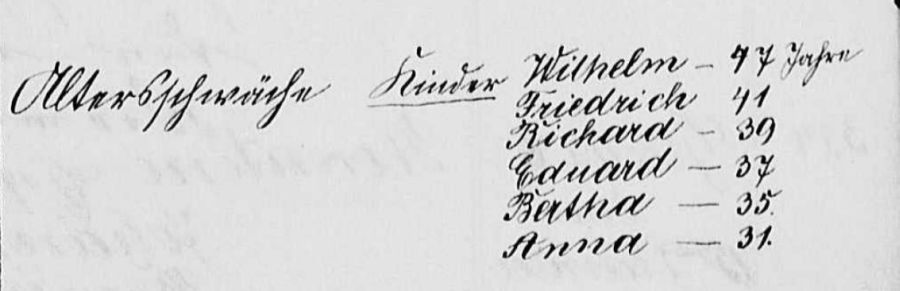 Altersschwäche Kinder Wilhelm – 47 Jahre
Friedrich 41
Richard – 39
Eduard – 37
Bertha – 35.
Anna – 31.